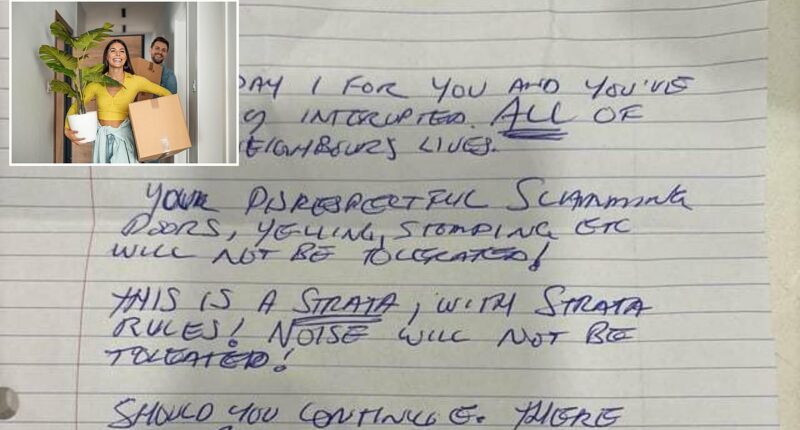 DAY 1 FOR YOU AND YOU'VE
INTERUPTED ALL OF
EIGHBOURS LIVES.
YOUR DISRESPECTFUL SLAMMING
DOORS, YELLING, STOMPING ETC
WILL NOT BE TOLERATED!
THIS IS A STRATA, WITH STRATA
RULES! NOISE WILL NOT BE
TOLEATED!
SHOULD YOU CONTINUE. THERE